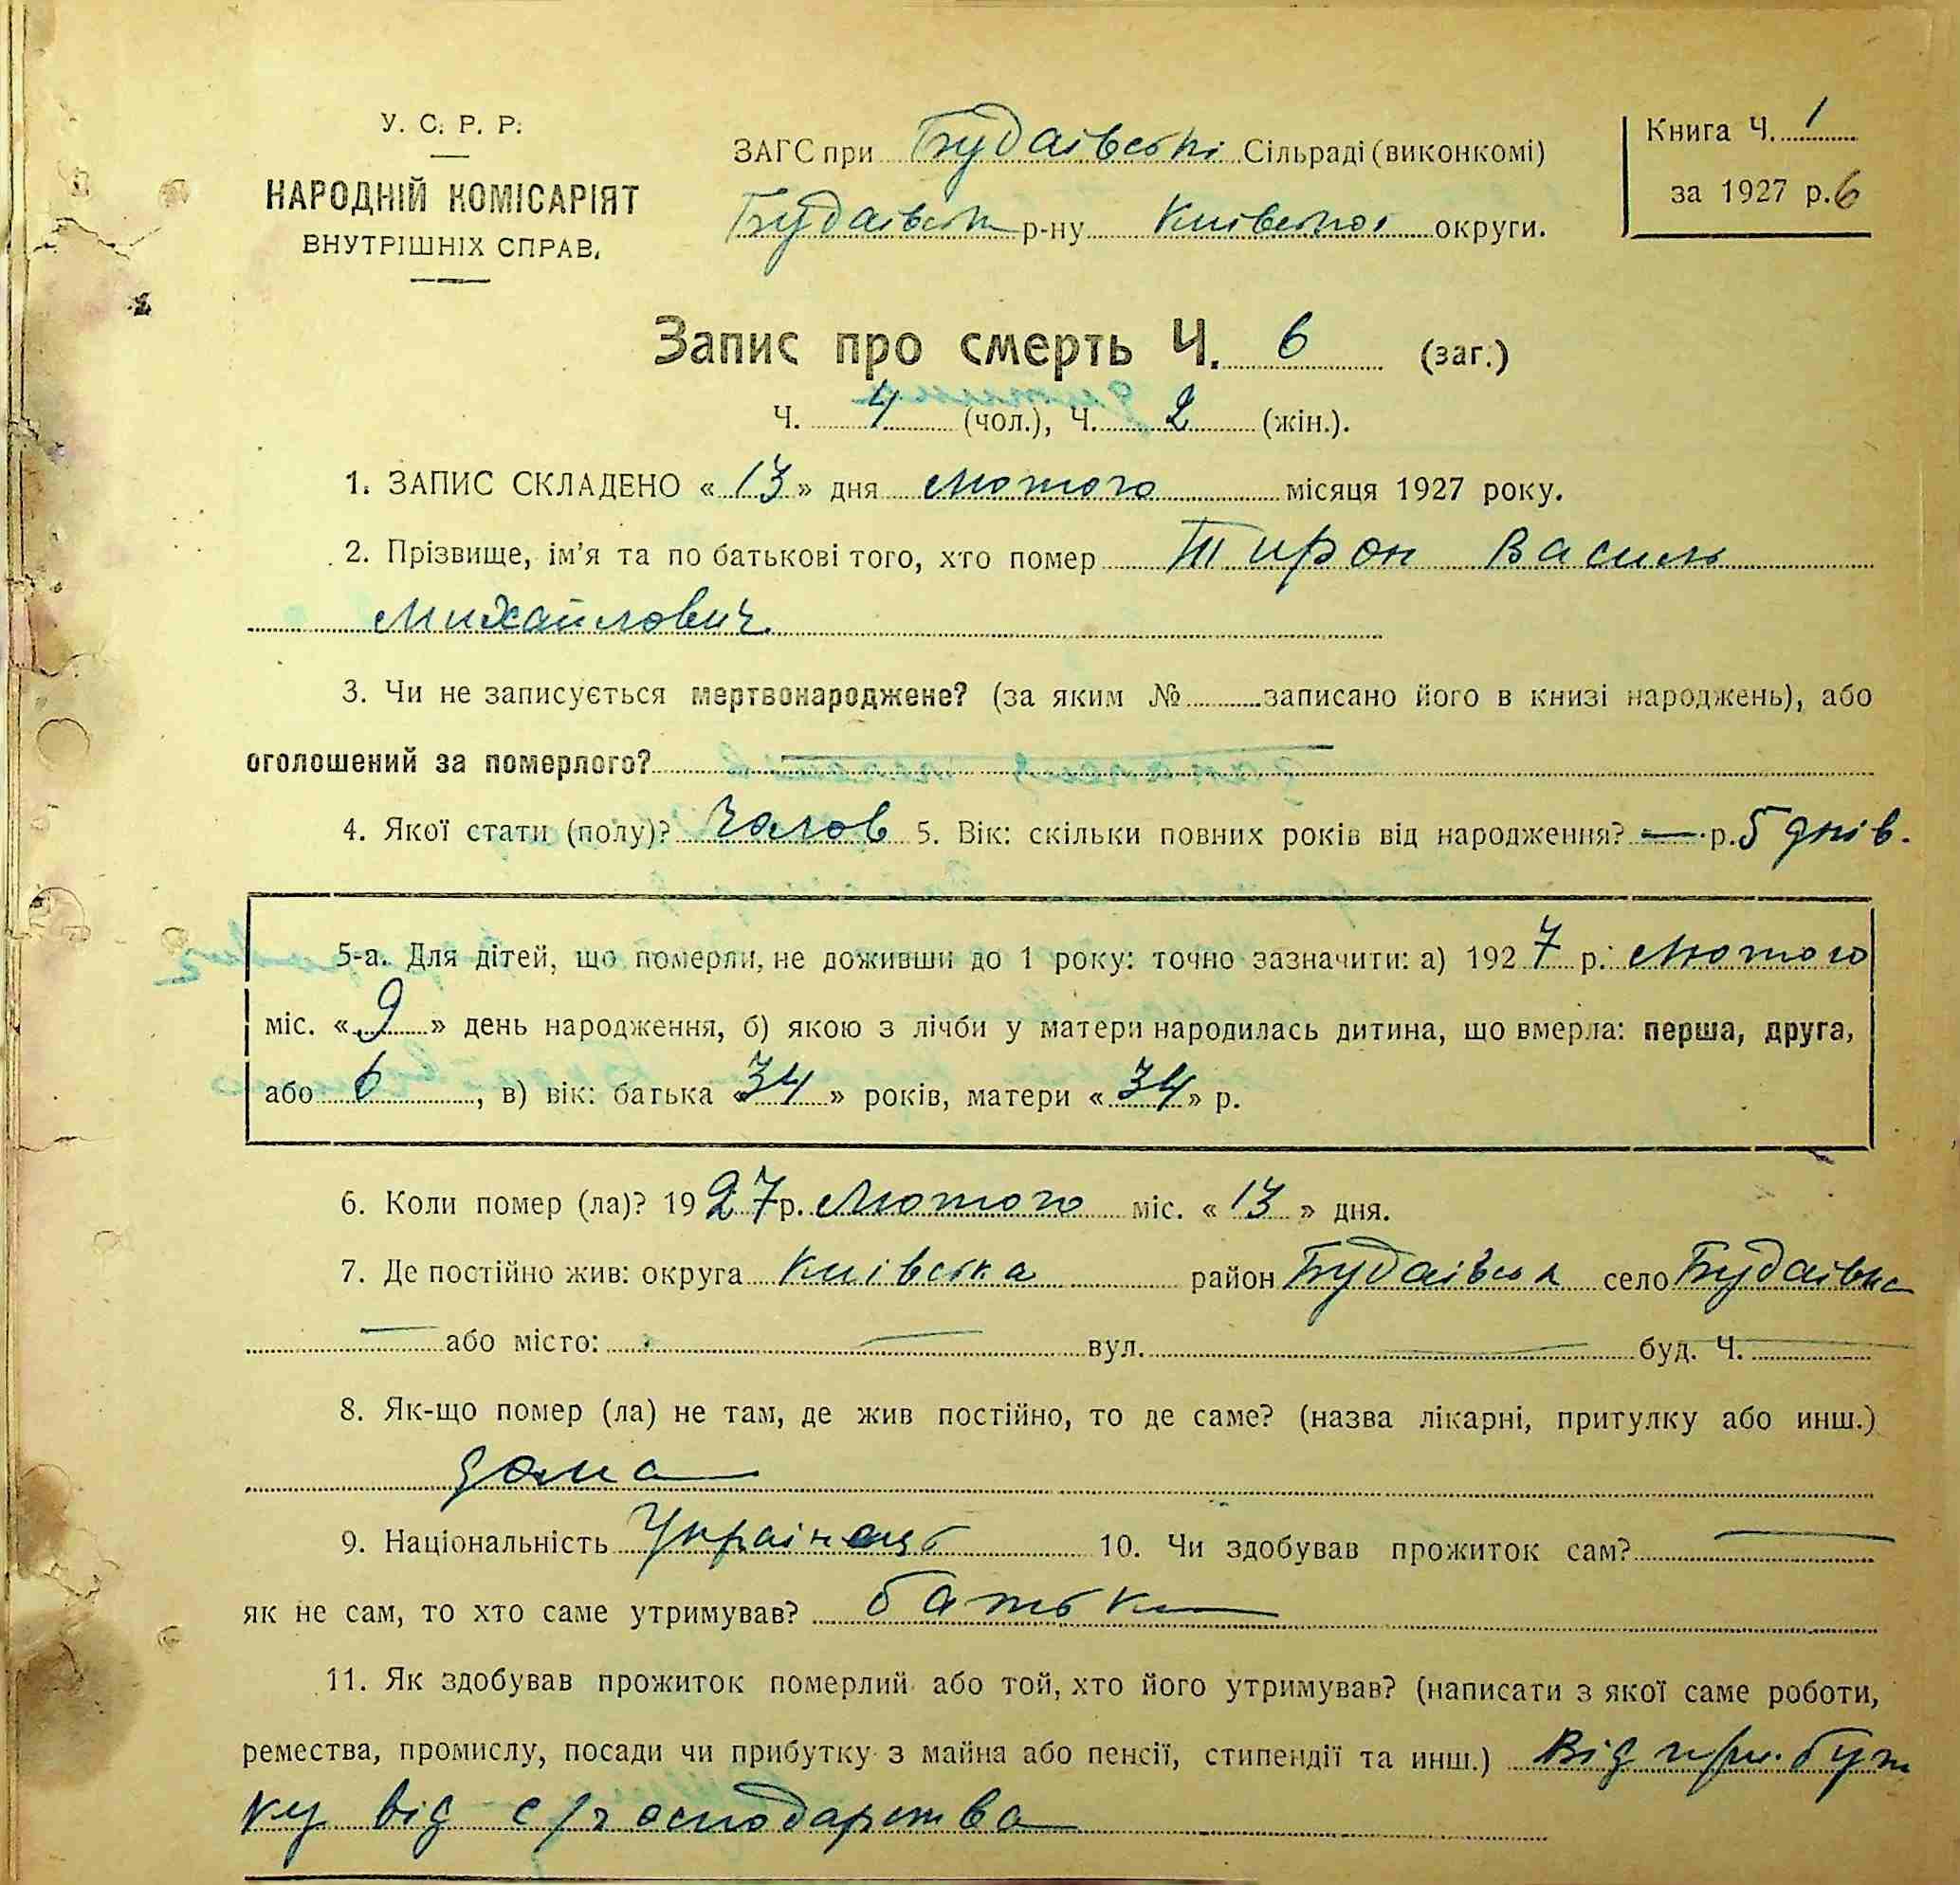 У. С. Р. Р.
НАРОДНІЙ КОМІСАРІЯТ
ВНУТРІШНІХ СПРАВ.
ЗАГС при Будаівські Сільраді (виконкомі)
Будаівськ р-ну Киівської округи.
Книга Ч. 1
за 1927 р. 6
Запис про смерть Ч. 6 (заг.)
Ч. 4 (чол.), Ч. 2 (жін.).
1. ЗАПИС СКЛАДЕНО « 13 » дня лютого місяця 1927 року.
2. Прізвище, ім'я та по батькові того, хто помер Тирон Василь
Михайлович.
3. Чи не записується мертвонароджене? (за яким № записано його в книзі народжень), або
оголошений за померлого? —
4. Якої стати (полу)? Чолов 5. Вік: скільки повних років від народження? — р. 5 днів.
5-а. Для дітей, що померли, не доживши до 1 року: точно зазначити: а) 1927 р. лютого
міс. « 9 » день народження, б) якою з лічби у матери народилась дитина, що вмерла: перша, друга,
або 6, в) вік: батька « 34 » років, матери « 34 » р.
6. Коли помер (ла)? 1927 р. лютого міс. « 13 » дня.
7. Де постійно жив: округа Киівська район Будаівськ село Будаівка
— або місто: — вул. — буд. Ч. —
8. Як-що помер (ла) не там, де жив постійно, то де саме? (назва лікарні, притулку або инш.)
дома
9. Національність Українець 10. Чи здобував прожиток сам? —
як не сам, то хто саме утримував? батьки
11. Як здобував прожиток померлий або той, хто його утримував? (написати з якої саме роботи,
ремества, промислу, посади чи прибутку з майна або пенсії, стипендії та инш.) Від при.бут
ку від с/господарства